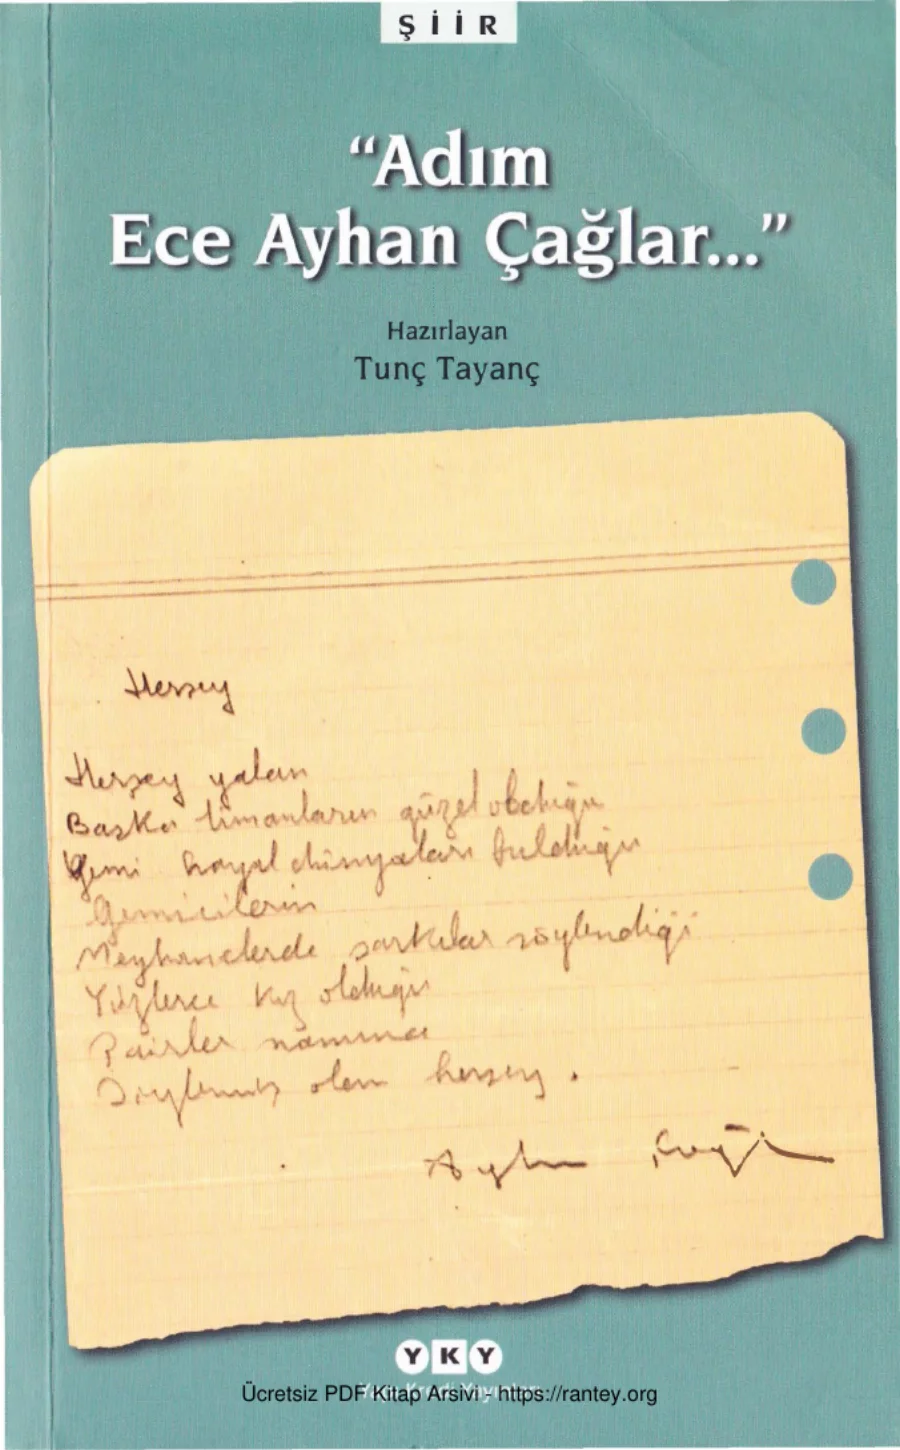 ŞİİR
“Adım
Ece Ayhan Çağlar...”
Hazırlayan
Tunç Tayanç
Herşey
Herşey yalan
Başka limanların güzel olduğu
Yeni hayal dünyaları bulduğu
Gemicilerin
Meyhanelerde şarkılar söylendiği
Yüzlerce kız olduğu
Şairler namına
Söylenmiş olan herşey.
Ayhan Çağlar
YKY
Yapı Kredi Yayınları
Ücretsiz PDF Kitap Arsivi - https://rantey.org